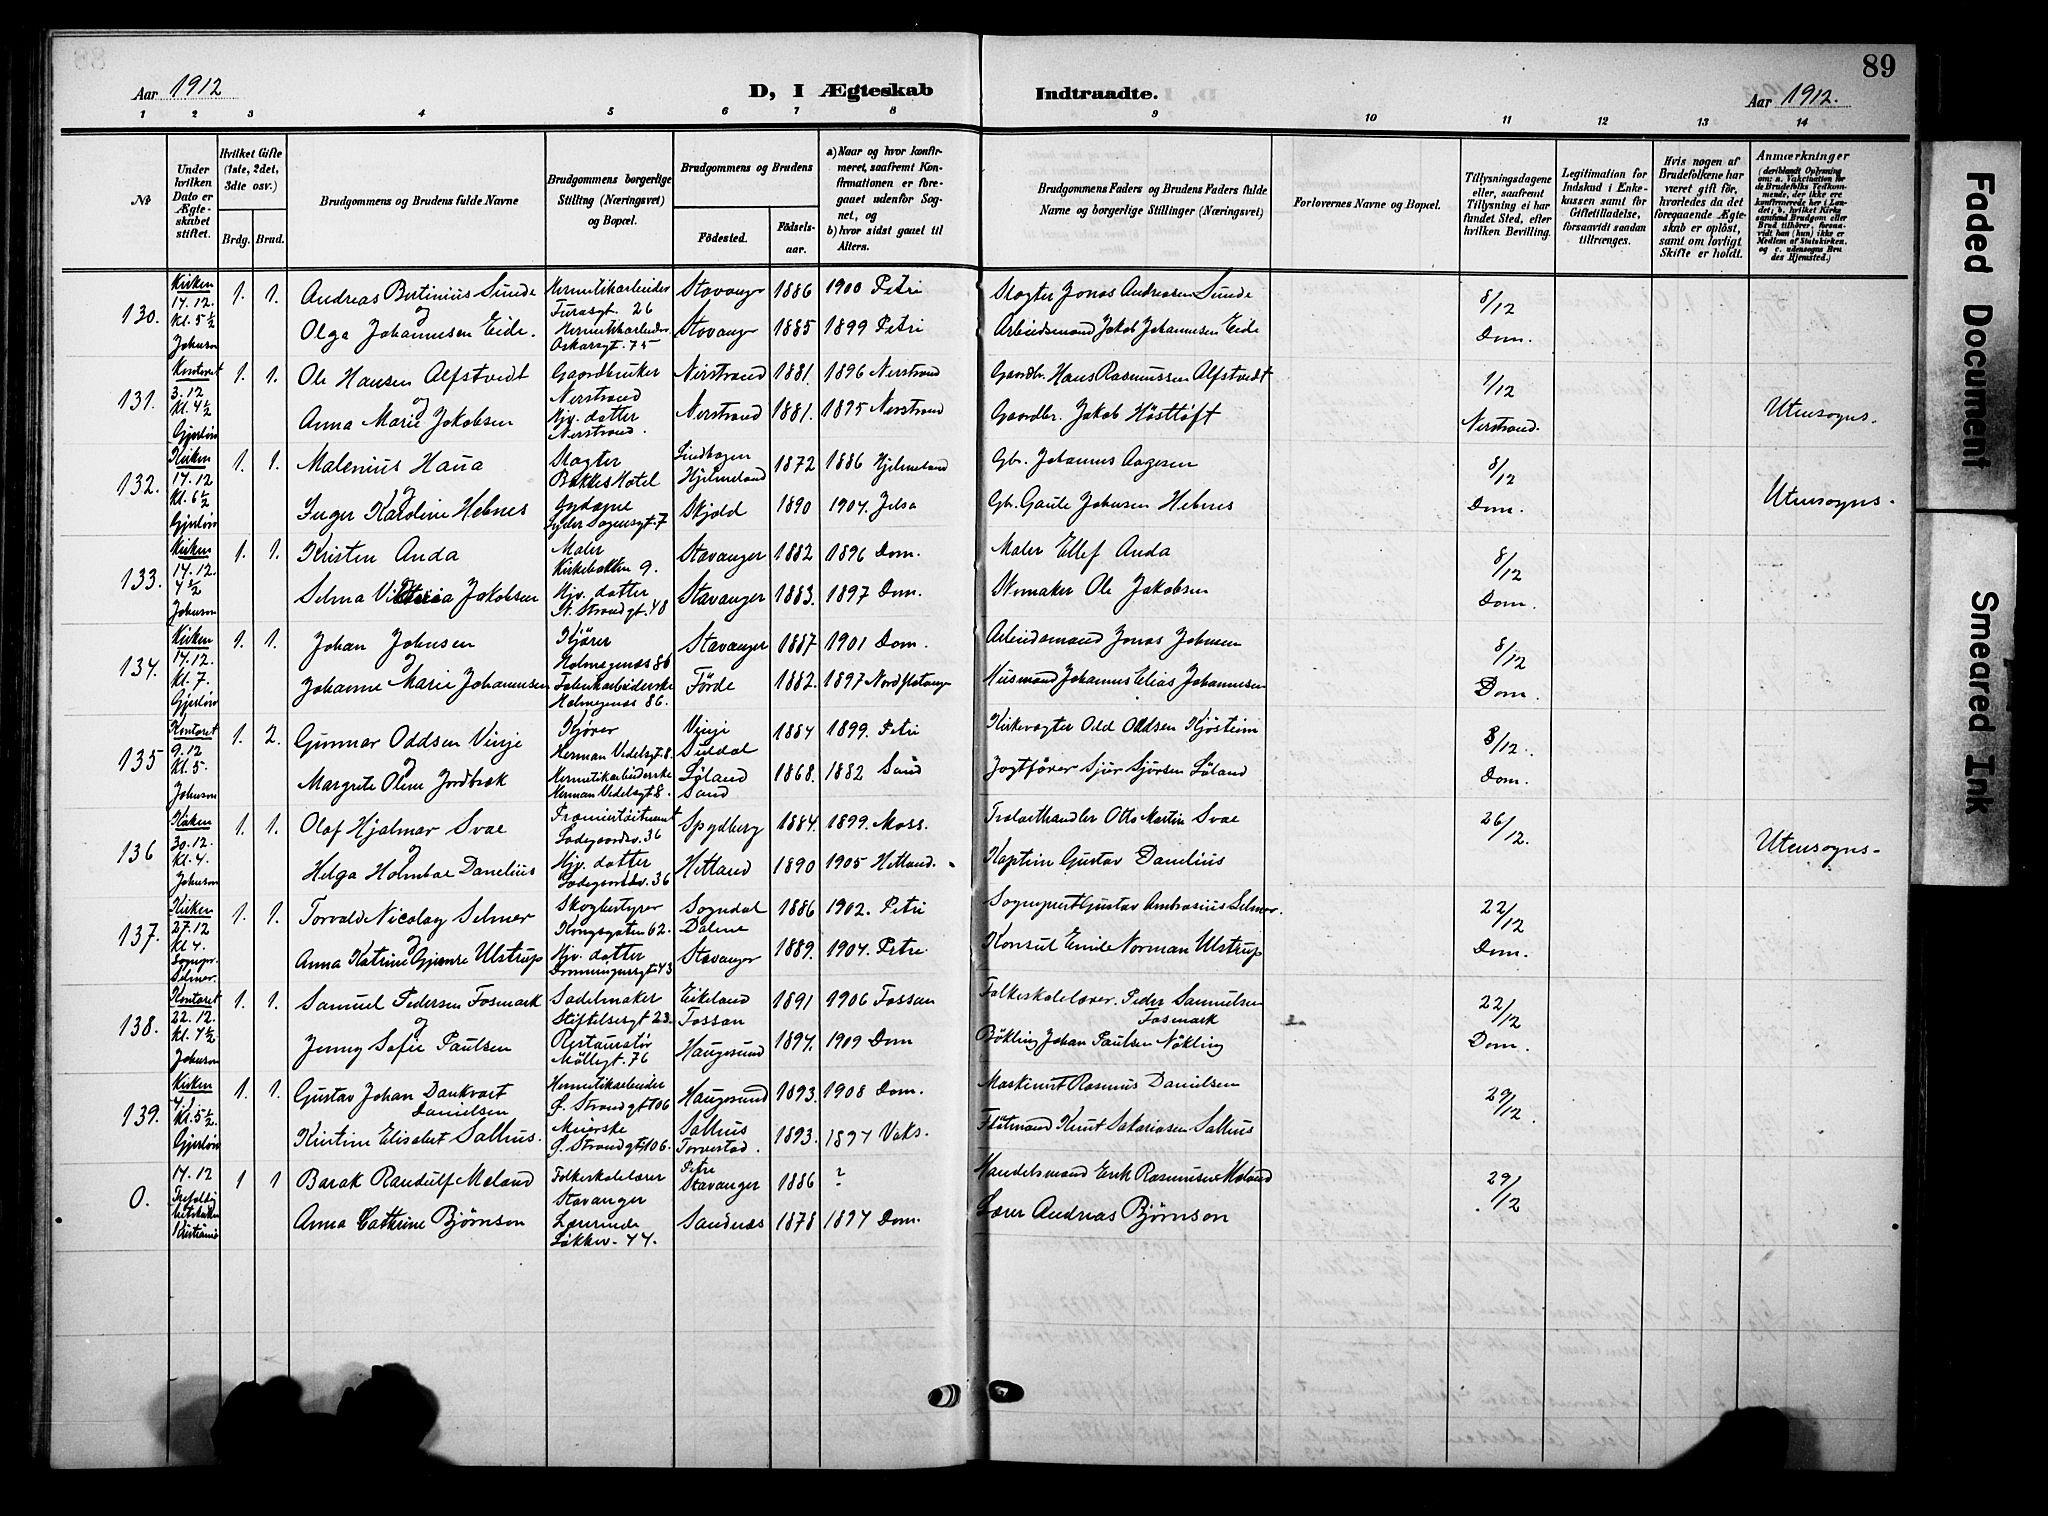 89
Aar 1912
D, I Ægteskab
Indtraadte.
Aar 1912.
1 2 3 4 5 6 7 8 9 10 11 12 13 14
№
Under hvilken Dato er Ægteskabet stiftet.
Hvilket Gifte (1ste, 2det, 3die osv.)
Brdg. Brud.
Brudgommens og Brudens fulde Navne
Brudgommens borgerlige Stilling (Næringsvei) og Bopæl.
Brudgommens og Brudens
Födested.
Födselsaar.
a) Naar og hvor konfirmeret, saafremt Konfirmationen er foregaaet udenfor Sognet, og
b) hvor sidst gaaet til Alters.
Brudgommens Faders og Brudens Faders fulde Navne og borgerlige Stillinger (Næringsvei)
Forlovernes Navne og Bopæl.
Tillysningsdagene eller, saafremt Tillysning ei har fundet Sted, efter hvilken Bevilling.
Legitimation for Indskud i Enkekassen samt for Giftetilladelse, forsaavidt saadan tiltrænges.
Hvis nogen af Brudefolkene har været gift för, hvorledes da det foregaaende Ægteskab er oplöst, samt om lovligt Skifte er holdt.
Anmærkninger
130. Kirken 14.12. Kl. 5½ Johnson 1. 1. Andreas Bertinius Sunde Hermetikarbeider Stavanger 1886 1900 Petri Slagter Jonas Andreasen Sunde 8/12
og
Olga Johannesen Eide. Hermetikarbeider Oskarsgt. 75 Stavanger 1885 1899 Petri Arbeidsmand Jakob Johannesen Eide Dom.
131. Kontoret 3.12 Kl. 4½ 1. 1. Ole Hansen Alfstvedt Gaardbruker Nerstrand Nerstrand 1881. 1896 Nerstrand Gaardbr. Hans Rasmussen Alfstvedt 1/12
og
Anna Marie Jakobsen Hjv. datter Nerstrand. Nerstrand 1881. 1895 Nerstrand Gaardbr. Jakob Nerstrand. Utensogns.
132. Kirken 14.12 Kl. 6½ 1. 1. Malenius Haua Slagter Hotel Hjelmeland 1872 1886 Hjelmeland Gb. Johannes Aagesen 8/12
og
Inger Karoline Hebnes Skjold 1890 1904. Jelsa Gb. Gaute Johnsen Hebnes Dom. Utensogns.
133. Kirken 14.12. 4½ Johnson 1. 1. Kristen Anda Maler Kirkebakken 9. Stavanger 1882 1896 Dom. Maler Ellef Anda 8/12
og
Selma Viktoria Jakobsen Hjv. datter St. Strandgt. 48 Stavanger 1883. 1897 Dom. Skomaker Ole Jakobsen Dom.
134. Kirken 14.12. Kl. 7. 1. 1. Johan Johnsen Kjører Holmegenæs 86 Stavanger 1887 1901 Dom. Arbeidsmand Jonas Johnsen 8/12
og
Johanne Marie Johannesen Fabrikarbeiderske Holmegenæs 86. Förde 1882. 1897 Husmand Johannes Elias Johannesen Dom.
135 Kontoret 9.12 Kl. 5. Johnson 1. 2. Gunnar Oddsen Vinje Kjører Herman Vedelsgt. 8. Vinje Suldal 1884 1899. Petri Kirkevagter Odd Oddsen 8/12.
og
Margrete Olene Jordbræk Hermetikarbeiderske Herman Vedelsgt 8. Löland Sand 1868. 1882 Sand Jagtfører Sjur Sjursen Löland Dom.
136 Kirken 30.12 Kl. 4. Johnson 1. 1. Olaf Hjalmar Svae Premierlöitnant Ladegaardsv. 36 Spydberg 1884. 1899. Moss. Trælasthandler Otto Martin Svae 26/12.
og
Helga Holmboe Danelius Hjv. datter Ladegaardsv. 36 Hetland 1890 1905 Hetland. Kaptein Gustav Danelius Utensogns.
137. Kirken 27.12 Kl 4. Sognepr. Selmer. 1. 1. Torvald Nicolay Selmer Skogbestyrer Kongsgaten 62. Sogndal Dalene 1886 1902. Petri Sogneprest Gustav Ambrosius Selmer. 22/12
og
Anna Katrine Ulstrup Hjv. datter Dronningensgt 43 Stavanger 1889. 1904. Petri Konsul Emile Norman Ulstrup Dom.
138. Kontoret 22.12. Kl. 4½ Johnson 1. 1. Samuel Pedersen Fosmark Sadelmaker Stiftelsesgt 23. Eikeland Fossan 1891 1906 Fossan Folkeskolelærer. Peder Samuelsen Fosmark 22/12
og
Jenny Sofie Paulsen Möllegt. 76 Haugesund 1894. 1909 Dom Johan Paulsen Dom.
139. Kirken Kl. 5½ 1. 1. Gustav Johan Dankvart Danielsen Hermetikarbeider Ø. Strandgt 106 Haugesund 1893. 1908 Dom. Maskinist Rasmus Danielsen 29/12
Kristine Elisabet Salhus. Meierske Ø. Strandgt. 106. Salhus Torvestad. 1893. Knut Sakariasen Salhus
0. 14.12 Kristiania 1 1 Barak Randulf Meland Folkeskolelærer Stavanger Petri Stavanger 1886 ? Handelsmand Erik Rasmussen Meland 29/12
Anna Cathrine Björnson Lærerinde Løkkev. 44. Sandnæs 1878 1894 Dom. Lærer Andreas Björnson
Faded Document
Smeared Ink